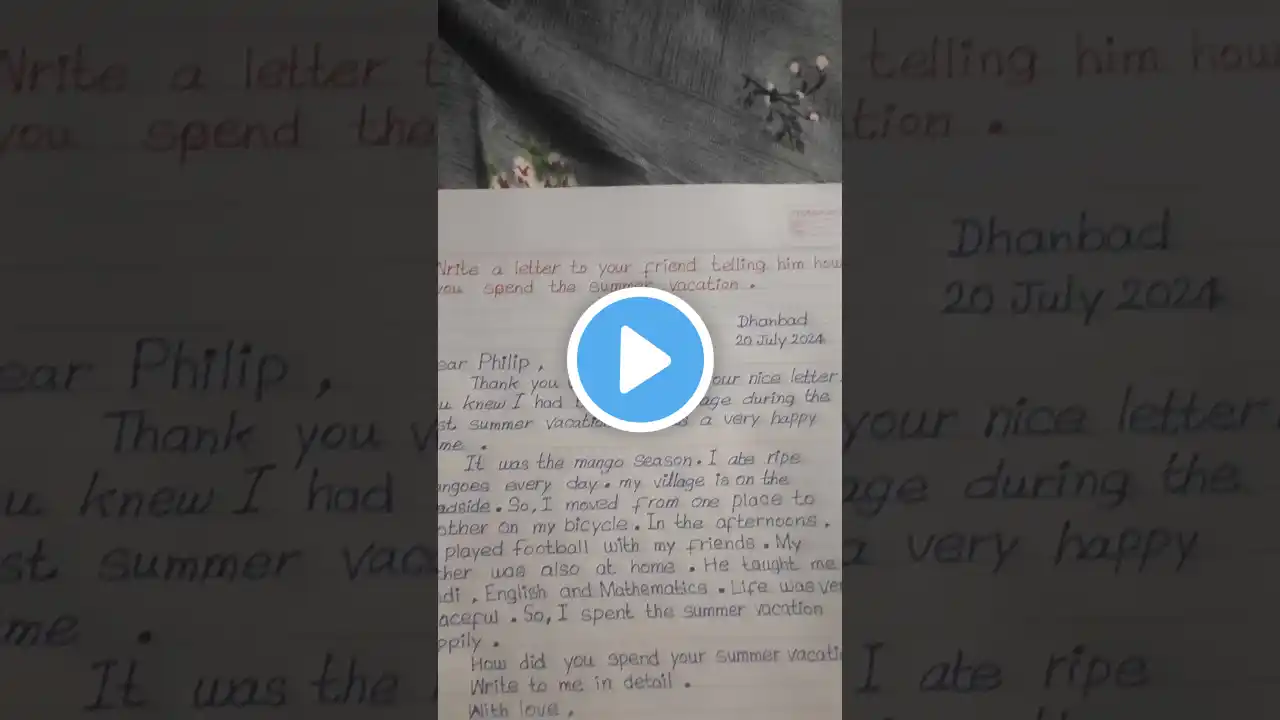 Write a letter to your friend telling him how
you spend the summer vacation.
Dhanbad
20 July 2024
ear Philip,
Thank you your nice letter.
u knew I had age during the
st summer vacation a very happy
me.
It was the mango season. I ate ripe
angoes every day. my village is on the
adside. So, I moved from one place to
other on my bicycle. In the afternoons,
played football with my friends. My
her was also at home. He taught me
di, English and Mathematics. Life was ver
aceful. So, I spent the summer vacation
ppily.
How did you spend your summer vacati
Write to me in detail.
With love,